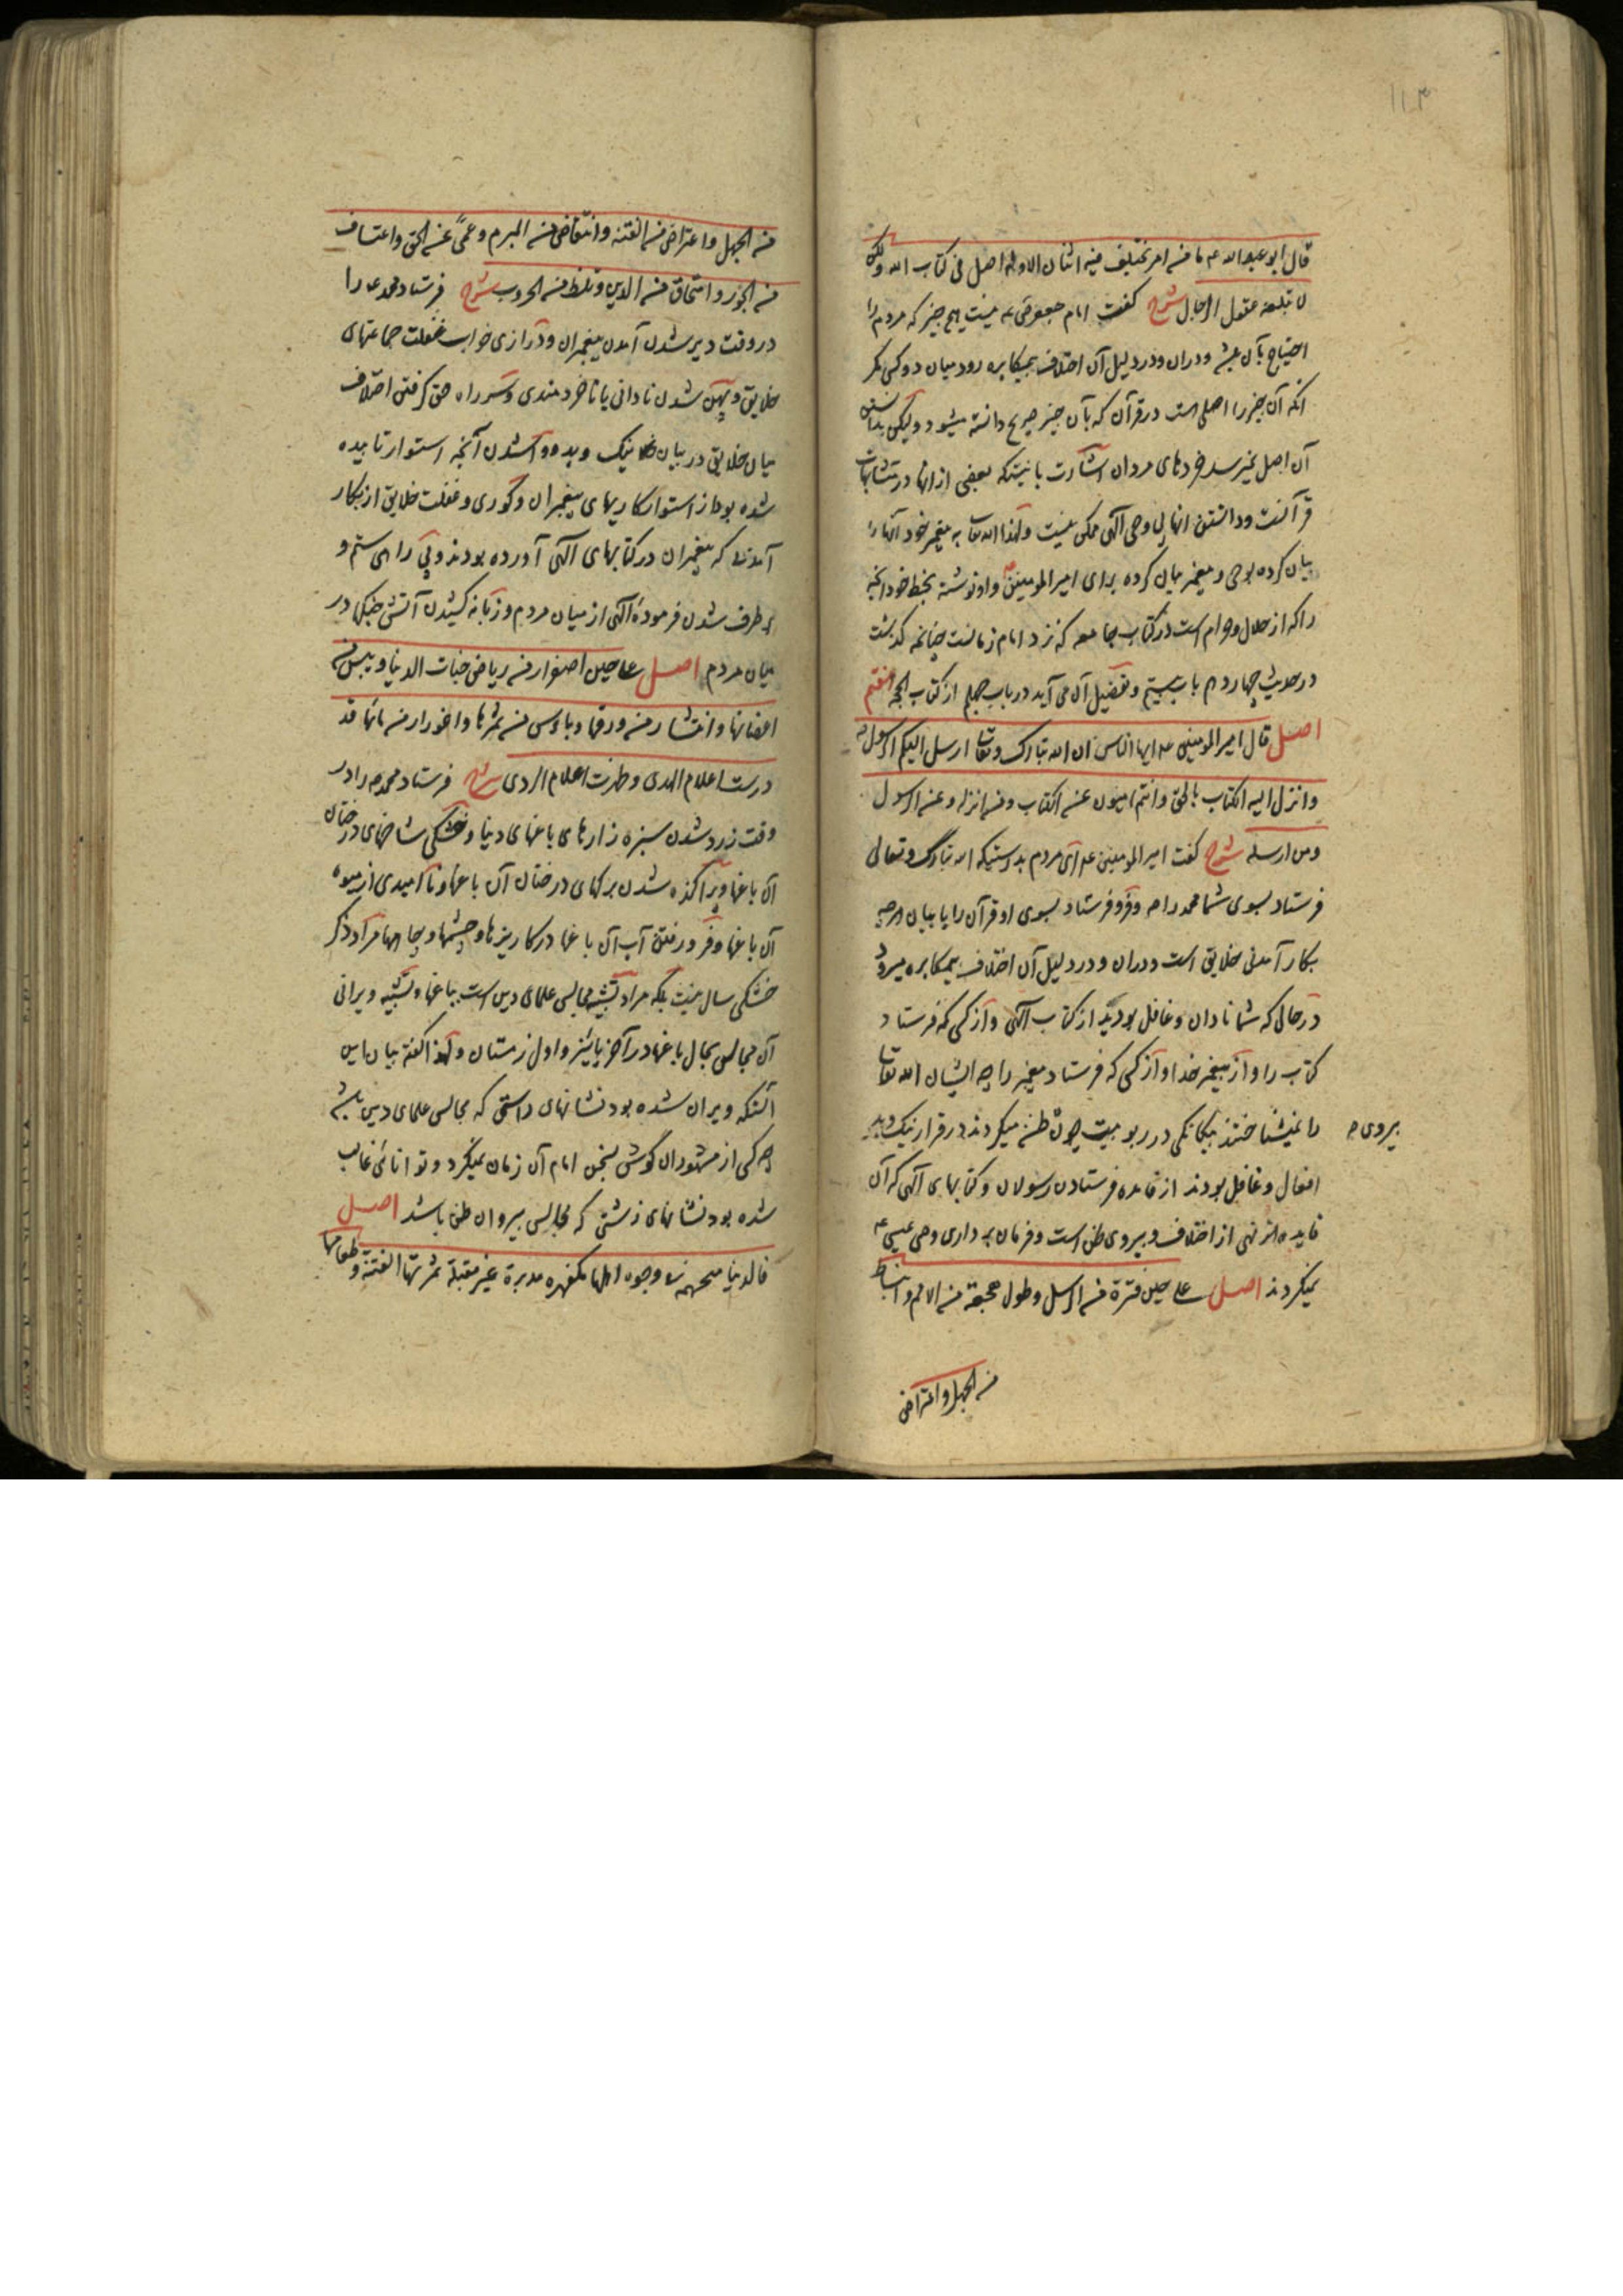 ۱۱۳
قال ابو عبد الله ع ما من امر يختلف فيه اثنان الا وله اصل فى كتاب الله ولكن
لا تبلغه عقول الرجال شرح گفت امام جعفر ع نیست هیچ چیز که مردم را
احتیاج بآن باشد و در آن و در دلیل آن اختلاف بیمکابره رود میان دو کس مگر
آنکه آن چیز را اصلی است در قرآن که بآن چیز صریح دانسته میشود و لیکن بدانستن
آن اصل نمیرسد خردهای مردان اشارت باینست که بعضی از انها در متشابهات
قرآنست و دانستن انها بی وحی الهی ممکن نیست و لهذا الله تعا به پیغمبر خود آنها را
بیان کرده بوحی و پیغمبر بیان کرده برای امیر المومنین ع و او نوشته بخط خود آنچه
را که از حلال و حرام است در کتاب جامعه که نزد امام زمانست چنانچه گذشت
در حدیث چهاردم باب بیستم و تفصیل آن می آید در باب چهلم از کتاب الحجة هفتم
اصل قال امير المومنين ع ايها الناس ان الله تبارك وتعا ارسل اليكم الرسول ص
وانزل اليه الكتاب بالحق وانتم اميون عن الكتاب ومن انزله وعن الرسول
ومن ارسله شرح گفت امیر المومنین ع ای مردم بدرستیکه الله تبارک و تعالی
فرستاد بسوی شما محمد را ص و فرو فرستاد بسوی او قرآن را با بیان هرچه
بکار آمدنی خلایق است و در آن و در دلیل آن اختلاف بیمکابره میرود
در حالی که شما نادان و غافل بودید از کتاب الهی و از کسی که فرستاد
کتاب را و از پیغمبر خدا و از کسی که فرستاد پیغمبر را چه ایشان الله تعا
را نمیشناختند بیگانگی در ربوبیت چون ظن میکردند در قرار نیک و بد
پیروی ص
افعال و غافل بودند از فایده فرستادن رسولان و کتابهای آلهی که آن
فایده نهی از اختلاف و پیروی ظن است و فرمان برداری وصی عیسی ع
نمیکردند اصل على حين فترة من الرسل وطول هجعة من الامم وانبساط
من الجهل واعتراض
من الجهل واعتراض من الفتنه وانتقاض من المبرم وعمىً عن الحق واعتساف
من الجور وامتحاق من الدين وتلظ من الحروب شرح فرستاد محمد ع را
در وقت دیر شدن آمدن پیغمبران و درازی خواب غفلت جماعتهای
خلایق و پهن شدن نادانی یا ناخردمندی و سر راه حق گرفتن اختلاف
میان خلایق در بیان نیک و بد و وا شدن آنچه استوار تابیده
شده بود از استوارکاریهای پیغمبران و کوری و غفلت خلایق از بکار
آمدنی که پیغمبران در کتابهای الهی آورده بودند و بی راهی ستم و
بر طرف شدن فرمودهٔ الهی از میان مردم و زبانه کشیدن آتش جنگها در
میان مردم اصل على حين اصفرار من رياض جنات الدنيا ويبس من
اغصانها وانتشار من ورقها وياءس من ثمرها واغورار من مائها قد
درست اعلام الهدى وظهرت اعلام الردى شرح فرستاد محمد ص را در
وقت زرد شدن سبزه زارهای باغهای دنیا و خشکی شاخهای درختان
آن باغها و پراکنده شدن برگهای درختان آن باغها و نا امیدی از میوه
آن باغها و فرو رفتن آب آن باغها در کاریزها و چشمها و چاهها مراد ذکر
خشکی سال نیست بلکه مراد تشبیه مجالس علمای دین است بباغها و تشبیه ویرانی
آن مجالس بحال باغها در آخر پائیز و اول زمستان و لهذا گفته بیان این
آنکه ویران شده بود نشانهای راستی که مجالس علمای دین باشد
چه کسی از مشهوران گوش بسخن امام آن زمان نمیکرد و توانائی غالب
شده بود نشانهای زشتی که مجالس پیروان ظن باشد اصل
فالدنيا متهجمة فى وجوه اهلها مكفهره مدبرة غير مقبلة ثمرتها الفتنه وطعامها